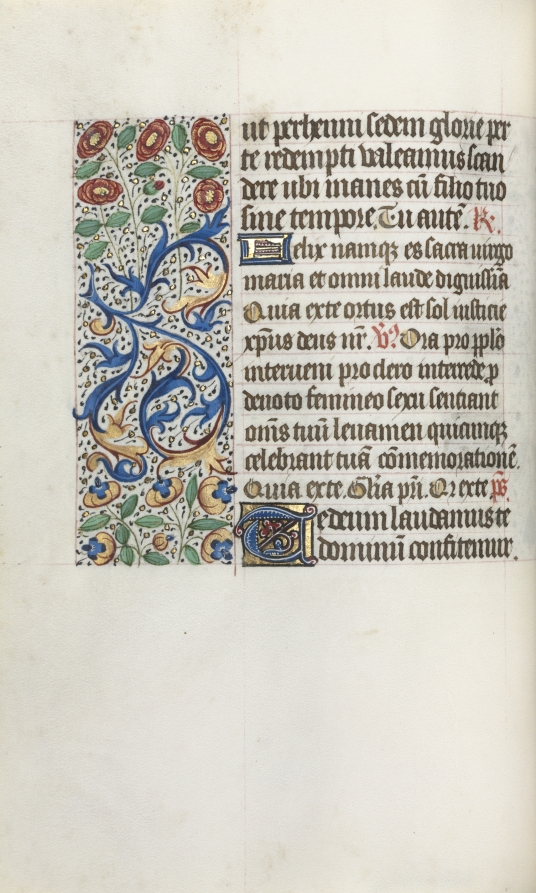 ut perheuni sedem glorie per
te redempti valeamus scan
dere ubi manes cū filio tuo
sine tempore. Tu autē. R.
Felix namqz es sacra uirgo
maria et omni laude dignissīa
Quia ex te ortus est sol iusticie
xp̄us deus nr̄. V̊. Ora pro pplō
interueni pro clero intercede p
deuoto femineo sexu sentiant
om̄s tuū leuamen quicumqz
celebrant tuā cōmemorationē.
Quia ex te. Glīa pr̄i. Qr ex te p̄s
Te deum laudamus te
dominū confitemur.